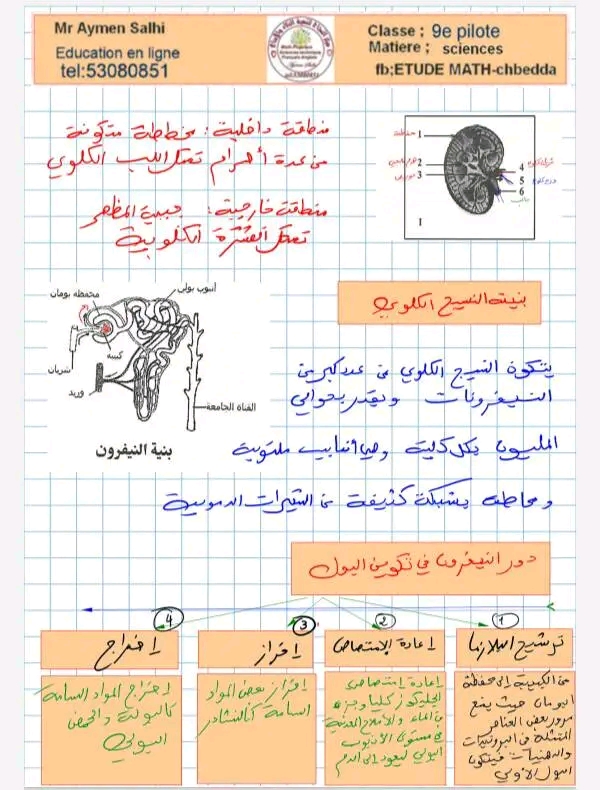 Mr Aymen Salhi
Education en ligne
tel:53080851
Classe ; 9e pilote
Matiere ; sciences
fb;ETUDE MATH-chbedda
منطقة داخلية : مخططة متكونة
من عدة أهرام تمثل اللب الكلوي
منطقة خارجية : حبيبية المظهر
تمثل القشرة الكلوية
1
2
3
4
5
6
I
بنية النسيج الكلوي
محفظة بومان
أنبوب بولي
كبيبة
شريان
وريد
القناة الجامعة
بنية النيفرون
يتكون النسيج الكلوي من عدد كبير من
النيفرونات ويقدر بحوالي
المليون بكل كلية وهي أنابيب ملتوية
ومحاطة بشبكة كثيفة من الشعيرات الدموية
دور النيفرون في تكوين البول
1
2
3
4
ترشيح البلازما
إعادة الإمتصاص
إفراز
إخراج
من الكبيبة إلى محفظة
البومان حيث يمنع
مرور بعض العناصر
المتمثلة في البروتيدات
والدهنيات فيتكون
البول الأولي
إعادة إمتصاص
الجليكوز كليا وجزء
من الماء والأملاح المعدنية
في مستوى الأنبوب
البولي ليعود إلى الدم
إفراز بعض المواد
السامة كالنشادر
إخراج المواد السامة
كالبولة والحمض
البولي